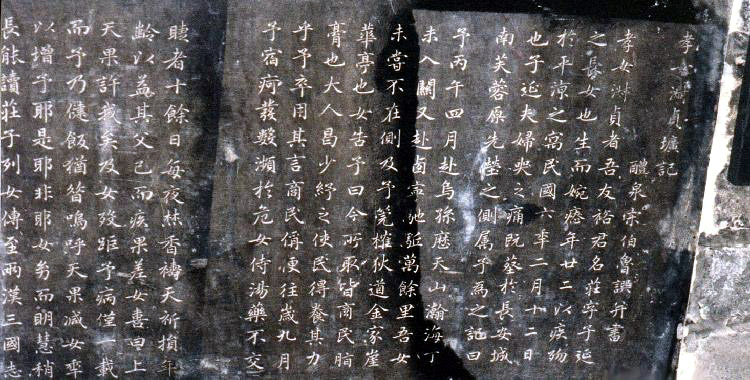 孝女淋貞壙記
醴泉宋伯魯譔并書
孝女淋貞者吾友裕君名莊字子延
之長女也生而婉瘱年廿二以疾殤
於平涼之寓民國六年二月十二日
也子延夫婦哭之痛既葬於長安城
南芙蓉原先塋之側屬予為之記曰
予丙午四月赴烏孫歷天山瀚海丁
未入關又赴鹵寧馳驅萬餘里吾女
未嘗不在側及予筦榷伙道金家崖
蓽亭也女告予曰今所取皆商民脂
膏也大人曷少紓之使民得養其力
乎予卒用其言商民偁便往歲九月
予宿疴發數瀕於危女侍湯藥不交
睫者十餘日每夜焚香禱天祈損年
齡以益其父已而疾果差女喜曰上
天果許我矣及女歿距予病僅一載
而予乃健飯猶昔嗚呼天果減女年
以增予耶是耶非耶女勞而朗慧稍
長能讀莊子列女傳至兩漢三國志